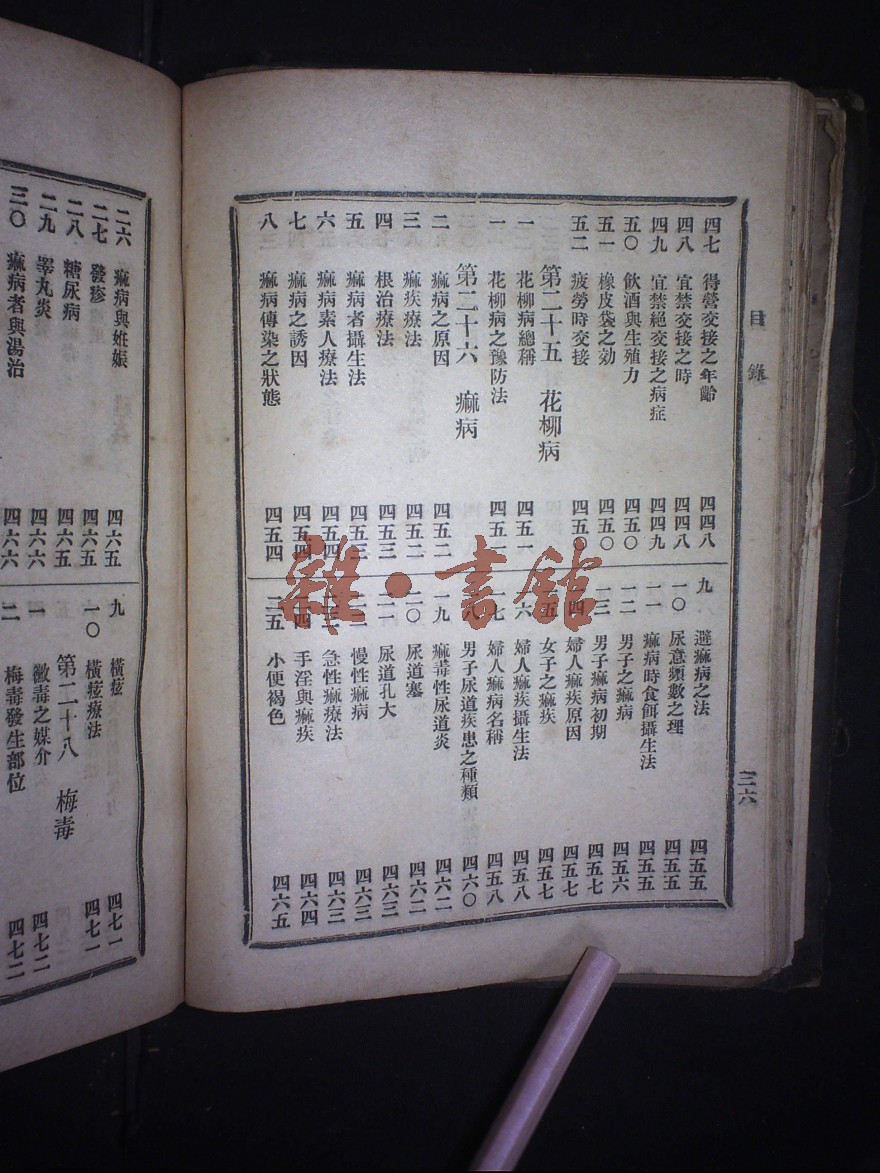 目錄
三六
四七 得營交接之年齡 四四八
四八 宜禁交接之時 四四八
四九 宜禁絕交接之病症 四四九
五〇 飲酒與生殖力 四五〇
五一 橡皮袋之効 四五〇
五二 疲勞時交接 四五〇
第二十五 花柳病
一 花柳病總稱 四五一
一 花柳病之豫防法 四五一
第二十六 痳病
二 痳病之原因 四五二
三 痳疾療法 四五二
四 根治療法 四五三
五 痳病者攝生法 四五三
六 痳病素人療法 四五四
七 痳病之誘因 四五四
八 痳病傳染之狀態 四五四
九 避痳病之法 四五五
一〇 尿意頻數之理 四五五
一一 痳病時食餌攝生法 四五五
一二 男子之痳病 四五六
一三 男子痳病初期 四五七
一四 婦人痳疾原因 四五七
一五 女子之痳疾 四五七
一六 婦人痳疾攝生法 四五八
一七 婦人痳病名稱 四五八
一八 男子尿道疾患之種類 四六〇
一九 痳毒性尿道炎 四六二
二〇 尿道塞 四六二
二一 尿道孔大 四六二
二二 慢性痳病 四六三
二三 急性痳療法 四六三
二四 手淫與痳疾 四六四
二五 小便褐色 四六五
二六 痳病與姙娠 四六五
二七 發疹 四六五
二八 糖尿病 四六五
二九 睾丸炎 四六六
三〇 痳病者與湯治 四六六
九 橫痃 四七一
一〇 橫痃療法 四七一
第二十八 梅毒
一 黴毒之媒介 四七二
二 梅毒發生部位 四七二
雜·書館